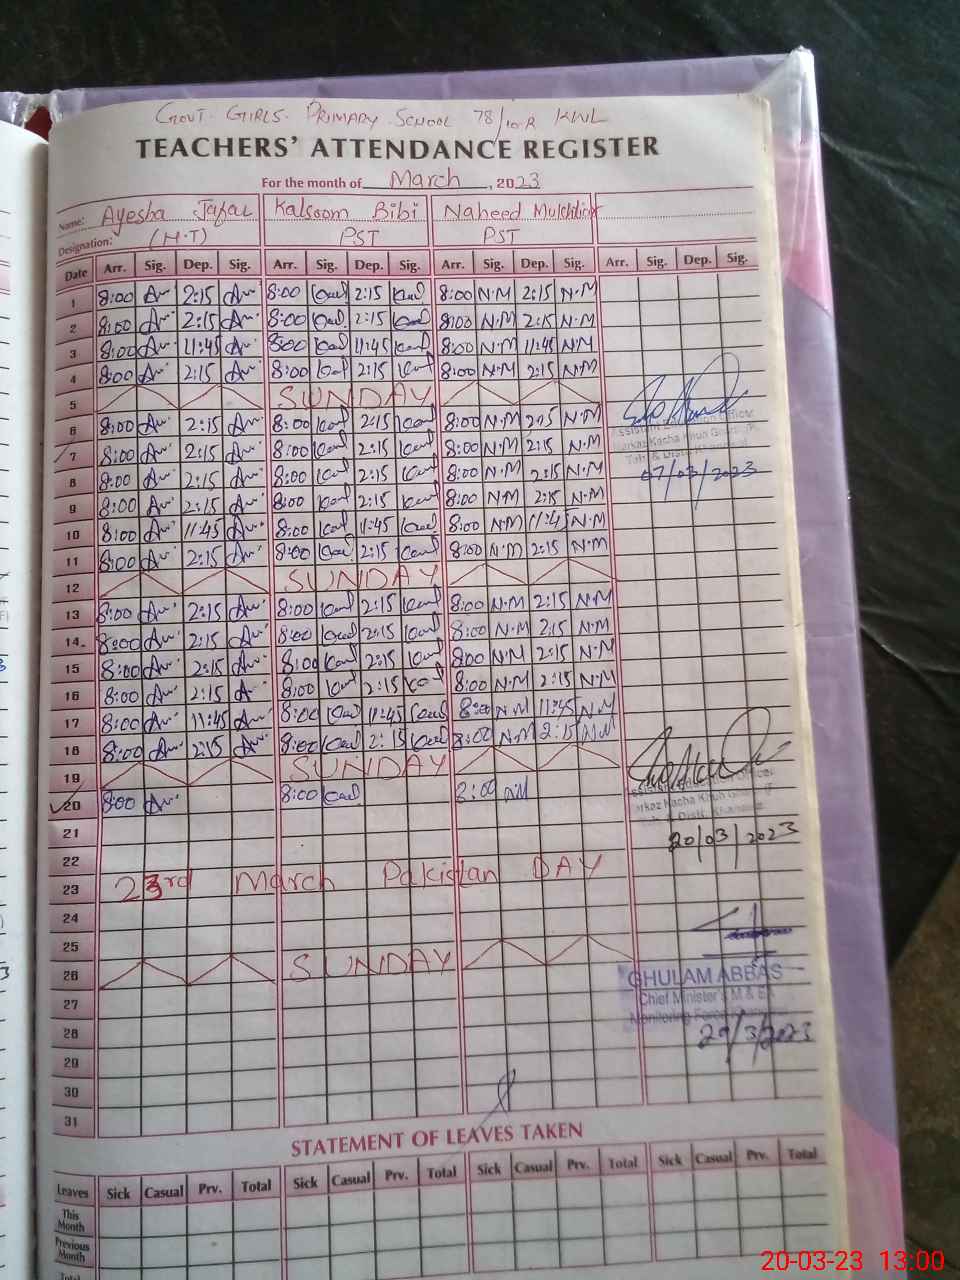 GOVT. GIRLS. PRIMARY SCHOOL 78/10-R KWL
TEACHERS' ATTENDANCE REGISTER
For the month of March, 2023
Name: Ayesha Jafar Kalsoom Bibi Naheed Mukhtiar
Designation: (H.T) PST PST
Date Arr. Sig. Dep. Sig. Arr. Sig. Dep. Sig. Arr. Sig. Dep. Sig. Arr. Sig. Dep. Sig.
1 8:00 2:15 8:00 2:15 8:00 N.M 2:15 N.M
2 8:00 2:15 8:00 2:15 8:00 N.M 2:15 N.M
3 8:00 11:45 8:00 11:45 8:00 N.M 11:45 N.M
4 8:00 2:15 8:00 2:15 8:00 N.M 2:15 N.M
5 SUNDAY
6 8:00 2:15 8:00 2:15 8:00 N.M 2:15 N.M
Assistant Education Officer
Markaz Kacha Khuh
7 8:00 2:15 8:00 2:15 8:00 N.M 2:15 N.M
Teh & Distt. Khanewal
8 8:00 2:15 8:00 2:15 8:00 N.M 2:15 N.M
07/03/2023
9 8:00 2:15 8:00 2:15 8:00 N.M 2:15 N.M
10 8:00 11:45 8:00 11:45 8:00 N.M 11:45 N.M
11 8:00 2:15 8:00 2:15 8:00 N.M 2:15 N.M
12 SUNDAY
13 8:00 2:15 8:00 2:15 8:00 N.M 2:15 N.M
14 8:00 2:15 8:00 2:15 8:00 N.M 2:15 N.M
15 8:00 2:15 8:00 2:15 8:00 N.M 2:15 N.M
16 8:00 2:15 8:00 2:15 8:00 N.M 2:15 N.M
17 8:00 11:45 8:00 11:45 8:00 N.M 11:45 N.M
18 8:00 2:15 8:00 2:15 8:00 N.M 2:15 N.M
19 SUNDAY
Assistant Education Officer
20 8:00 8:00 8:00
Markaz Kacha Khuh
Teh & Distt. Khanewal
21
20/03/2023
22
23 23rd March Pakistan DAY
24
25
26 SUNDAY
GHULAM ABBAS
27
Chief Minister's M & E
Monitoring Force
28
20/3/2023
29
30
31
STATEMENT OF LEAVES TAKEN
Leaves Sick Casual Prv. Total Sick Casual Prv. Total Sick Casual Prv. Total Sick Casual Prv. Total
This Month
Previous Month
Total
20-03-23 13:00